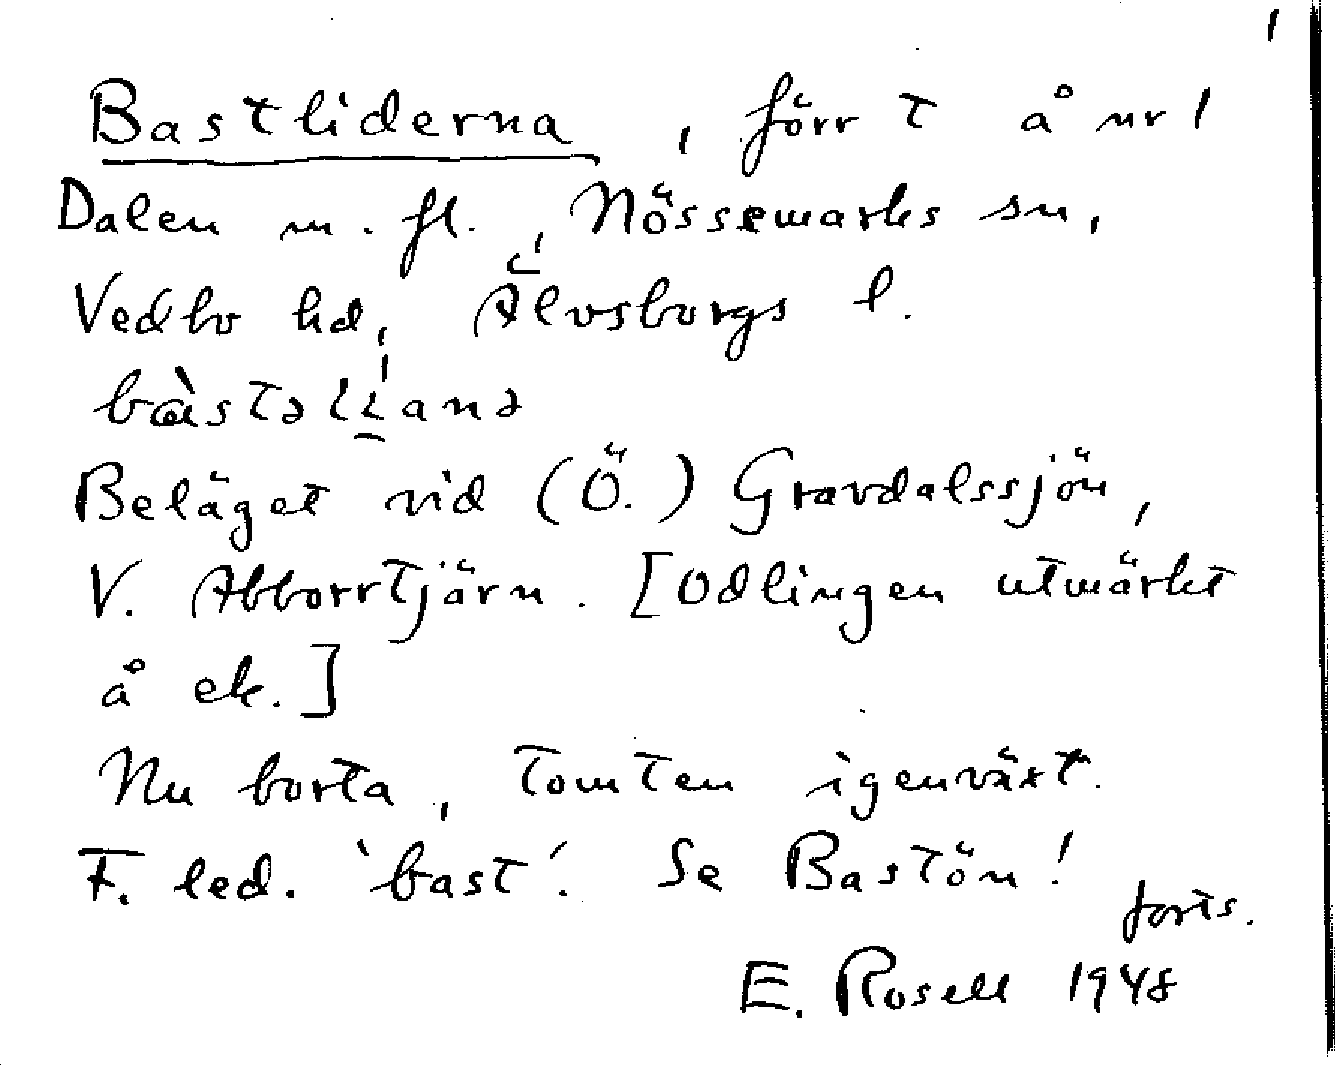 1
Bastliderna, förr t å nr 1
Dalen m. fl., Nössemarks sn,
Vedbo hd, Älvsborgs l.
Beläget vid (Ö.) Gravdalssjön,
V. Abborrtjärn. [Odlingen utmärkt
å ek.]
Nu borta, Tomten igenväxt.
F. led. 'bast'. Se Bastön!
forts.
E. Rosell 1948